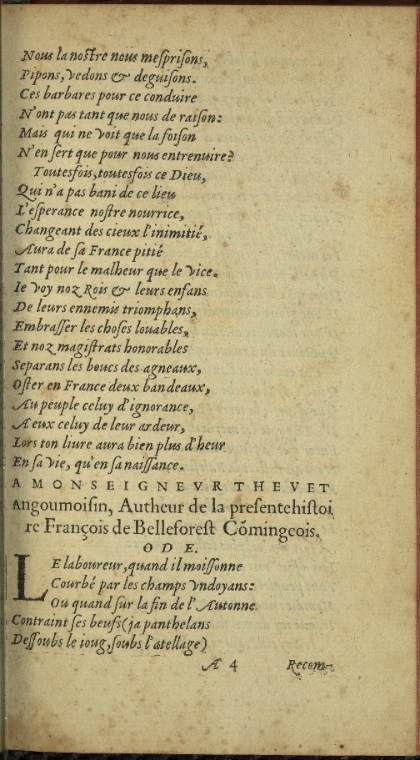 Nous la nostre nous mesprisons,
Pipons, vedons & deguisons.
Ces barbares pour ce conduire
N'ont pas tant que nous de raison:
Mais qui ne voit que la foison
N'en sert que pour nous entrenuire?
Toutesfois, toutesfois ce Dieu,
Qui n'a pas bani de ce lieu
L'esperance nostre nourrice,
Changeant des cieux l'inimitié,
Aura de sa France pitié
Tant pour le malheur que le vice.
Ie voy noz Rois & leurs enfans
De leurs ennemis triomphans,
Embrasser les choses louables,
Et noz magistrats honorables
Separans les boucs des agneaux,
Oster en France deux bandeaux,
Au peuple celuy d'ignorance,
A eux celuy de leur ardeur,
Lors ton liure aura bien plus d'heur
En sa vie, qu'en sa naissance.
A MONSEIGNEVR THEVET
Angoumoisin, Autheur de la presente histoi
re François de Belleforest Cõmingeois.
ODE.
LE laboureur, quand il moissonne
Courbé par les champs vndoyans:
Ou quand sur la fin de l'Autonne
Contraint ses beufs (ja panthelans
Dessoubs le ioug, soubs l'atellage)
A 4 Recom-